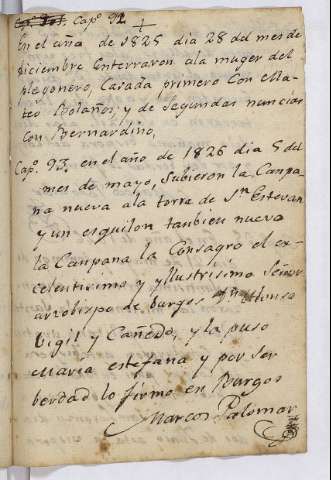 Capº 92
En el aña de 1825 dia 28 del mes de
Diciembre Enterraron ala muger del
plegonero, Casada primero Con Ma
teo Bolaños, y de Segundas nuncias
Con Bernardino,
Capº 93. en el año de 1826 dia 5 del
mes de mayo, Subieron la Canpa
na nueva ala torre de Sn Estevan
y un esquilon tanbien nuevo
la Canpana la Consagro el ex-
celentisimo y yllustrisimo Señor
arzobispo de burgos Alonso
Vigil y Cañedo, y la puso
Maria estefana y por Ser
berdad lo firmo en Burgos
Marcos Palomar